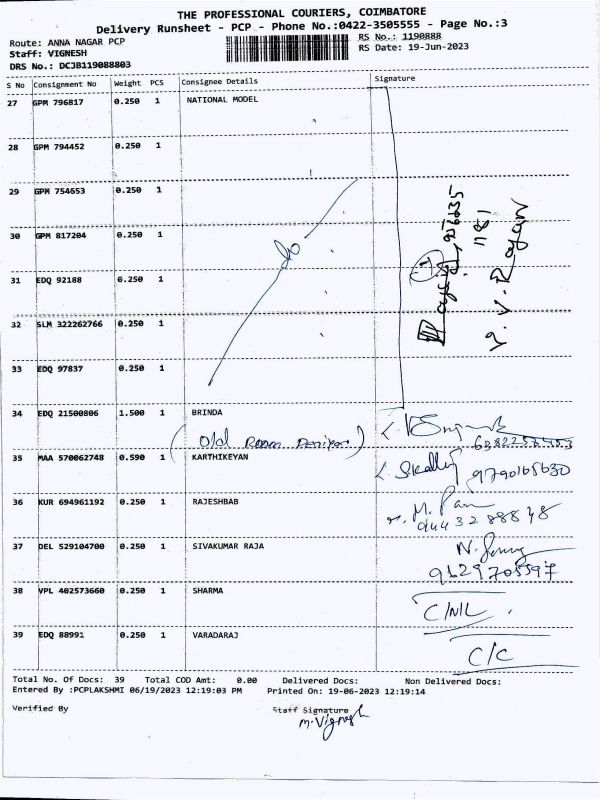 THE PROFESSIONAL COURIERS, COIMBATORE
Delivery Runsheet - PCP - Phone No.:0422-3505555 - Page No.:3
Route: ANNA NAGAR PCP RS No.: 1190888
Staff: VIGNESH RS Date: 19-Jun-2023
DRS No.: DCJB119088803
S No Consignment No Weight PCS Consignee Details Signature
27 GPM 796817 0.250 1 NATIONAL MODEL
28 GPM 794452 0.250 1
29 GPM 754653 0.250 1
30 GPM 817204 0.250 1
do
31 EDQ 92188 0.250 1
32 SLM 322262766 0.250 1
33 EDQ 97837 0.250 1
1181
V. V. Rajan
34 EDQ 21500806 1.500 1 BRINDA
(Old Room)
35 MAA 570062748 0.590 1 KARTHIKEYAN
9790165630
36 KUR 694961192 0.250 1 RAJESHBAB
9443288848
37 DEL 529104700 0.250 1 SIVAKUMAR RAJA
38 VPL 402573660 0.250 1 SHARMA
C/NIL
39 EDQ 88991 0.250 1 VARADARAJ
C/C
Total No. Of Docs: 39 Total COD Amt: 0.00 Delivered Docs: Non Delivered Docs:
Entered By :PCPLAKSHMI 06/19/2023 12:19:03 PM Printed On: 19-06-2023 12:19:14
Verified By Staff Signature
M.Vignesh